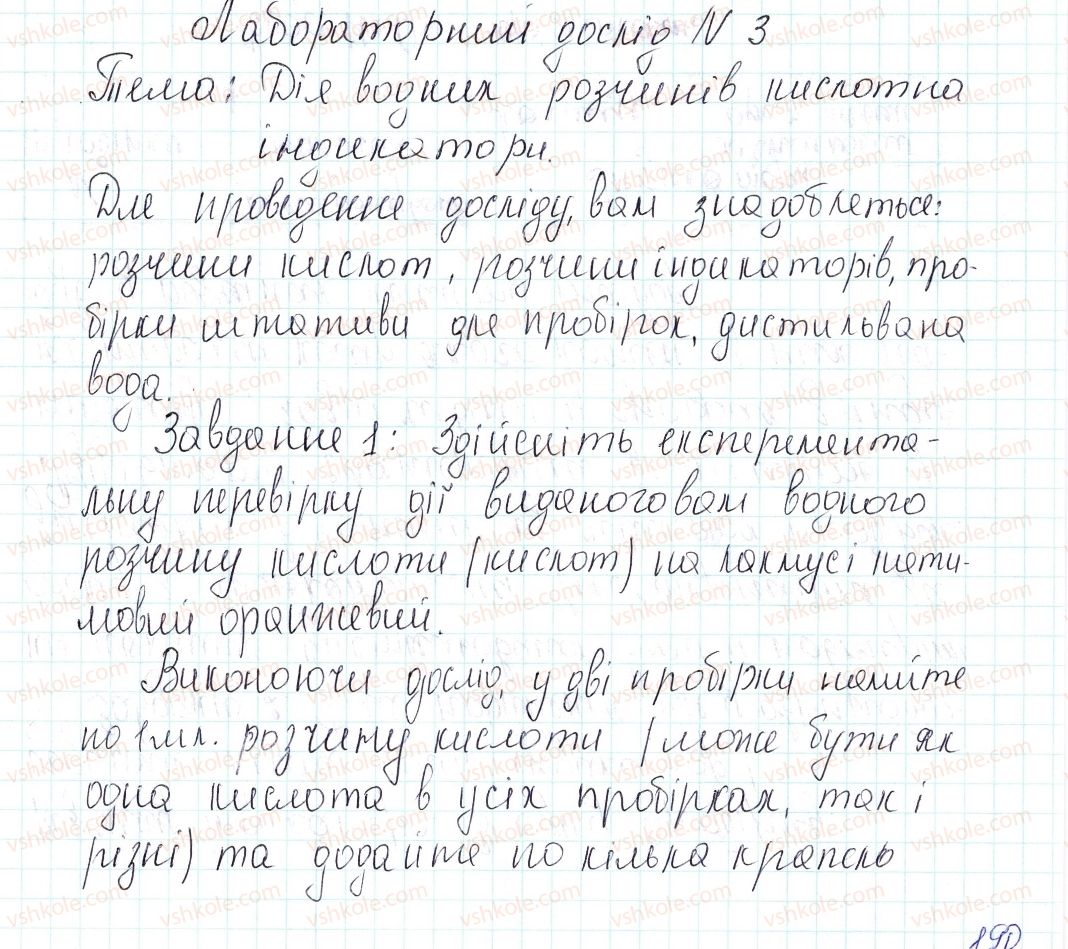 Лабораторний дослід N 3
Тема: Дія водних розчинів кислотна
індикатори.
Для проведення досліду, вам знадобляться:
розчини кислот, розчини індикаторів, про-
бірки штативи для пробірок, дистильвана
вода.
Завдання 1: Здійсніть експеримента-
льну перевірку дії виданоговам водного
розчину кислоти (кислот) на лакмус і мети-
мовий оранжевий.
Виконоючи дослід, у дві пробірки налийте
по 1мл. розчину кислоти (може бути як
одна кислота в усіх пробірках, так і
різні) та додайте по кілька крапель
vshkole.com